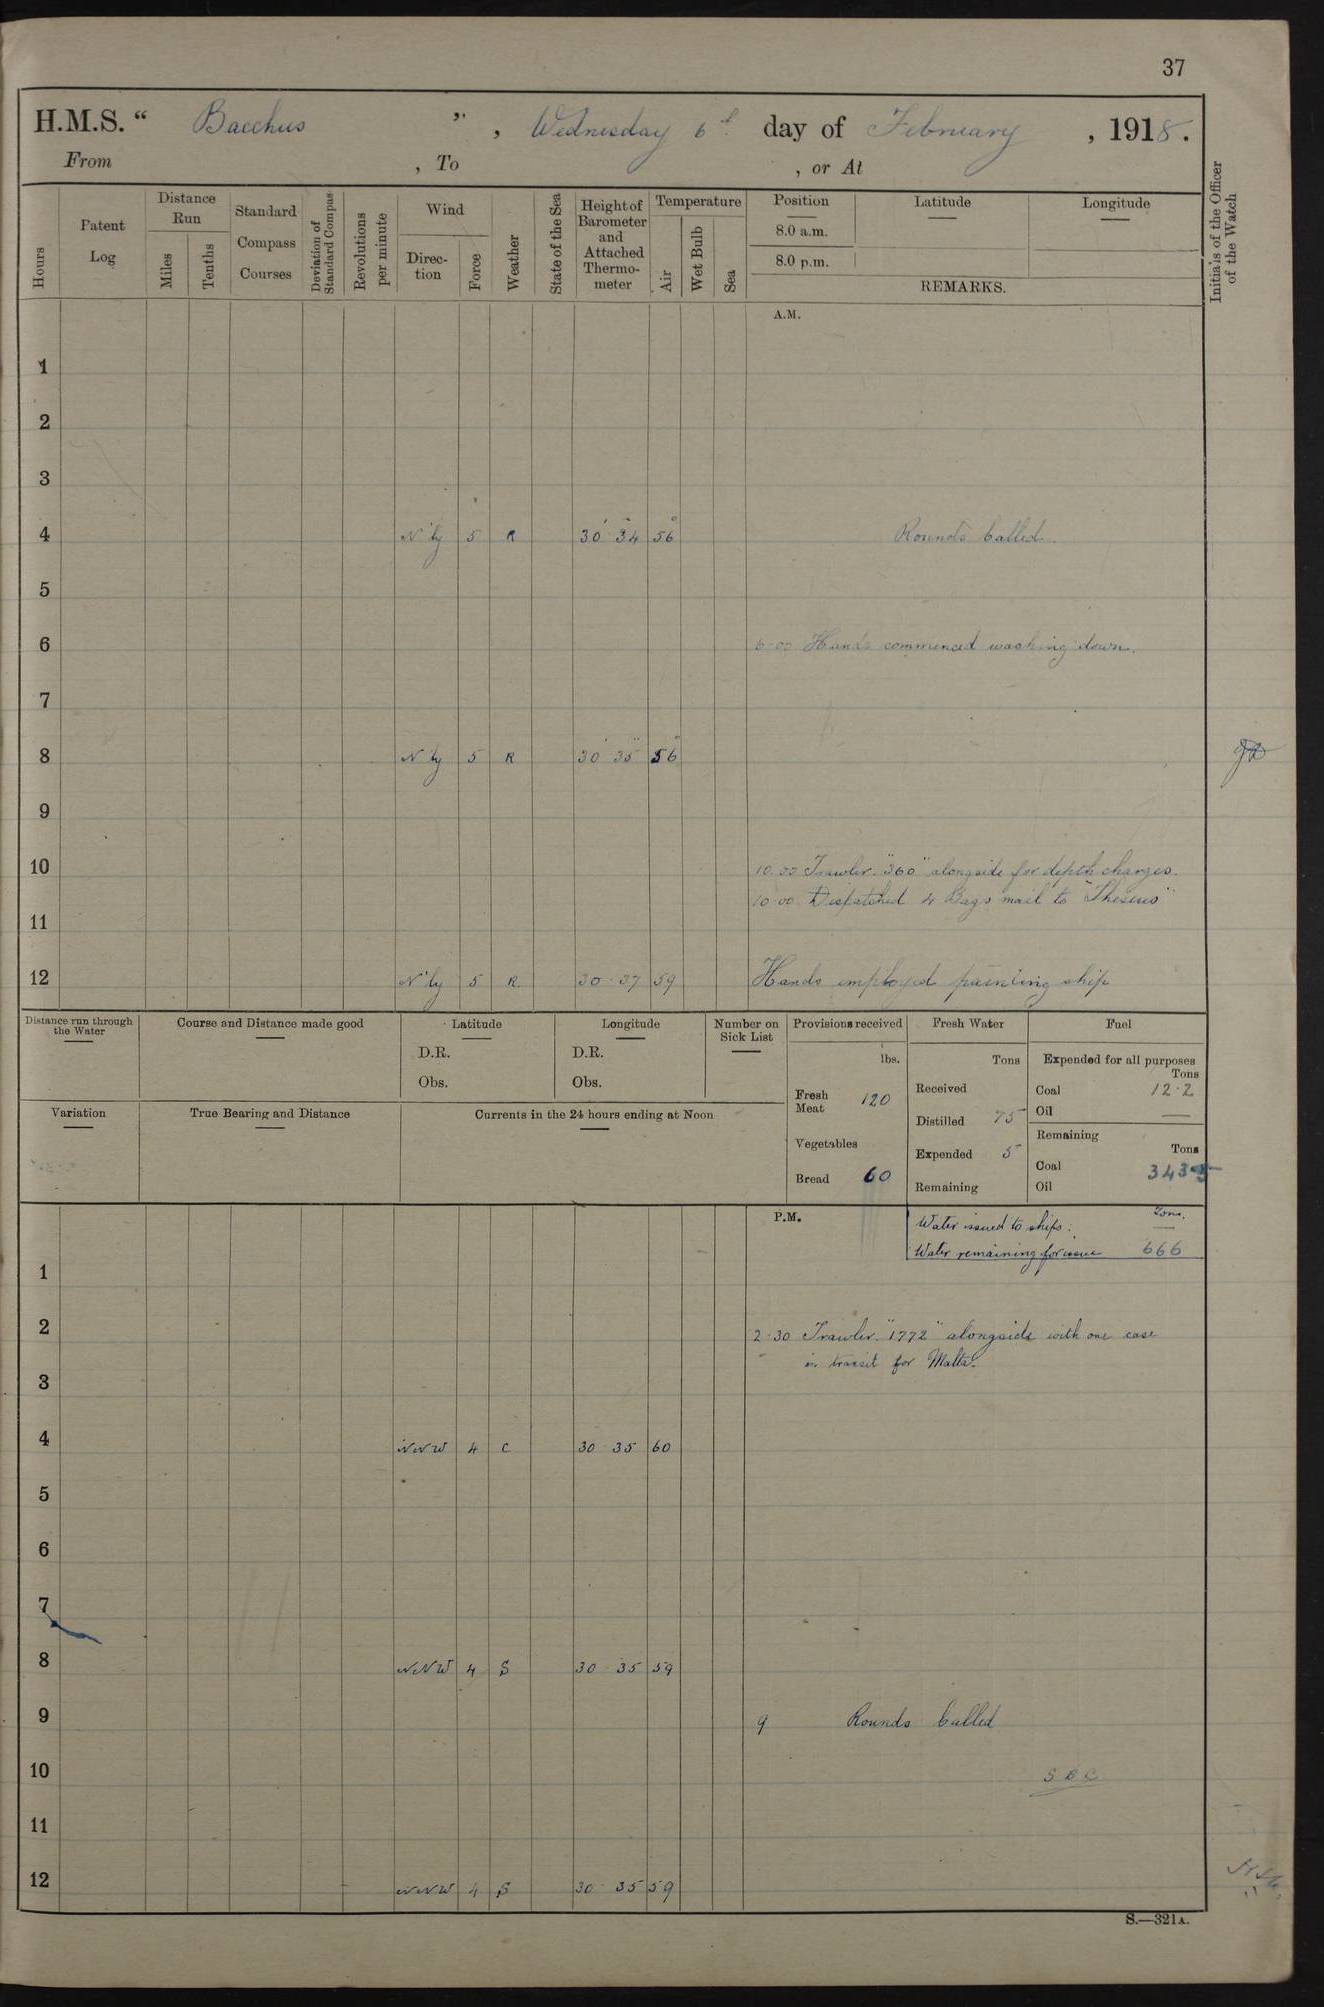 37
H.M.S. “ Bacchus ” , Wednesday 6th day of February , 1918.
From , To , or At
Hours
Patent Log
Distance Run
Miles
Tenths
Standard Compass Courses
Deviation of Standard Compass
Revolutions per minute
Wind
Direc-tion
Force
Weather
State of the Sea
Height of Barometer and Attached Thermo-meter
Temperature
Air
Wet Bulb
Sea
Position Latitude Longitude
8.0 a.m.
8.0 p.m.
REMARKS.
Initials of the Officer of the Watch
A.M.
1
2
3
4 N'ly 5 R 30 34 56 Rounds Called.
5
6 6-00 Hands commenced washing down.
7
8 N'ly 5 R 30 35 56
9
10 10.00 Trawler "360" alongside for depth charges.
10.00 Dispatched 4 Bags mail to "Theseus"
11
12 N'ly 5 R 30 37 59 Hands employed painting ship
Distance run through the Water
Course and Distance made good
Latitude
D.R.
Obs.
Longitude
D.R.
Obs.
Number on Sick List
Provisions received
lbs.
Fresh Meat 120
Vegetables
Bread 60
Fresh Water
Tons
Received
Distilled 75
Expended 5
Remaining
Fuel
Expended for all purposes
Tons
Coal 12.2
Oil —
Remaining
Tons
Coal 3435
Oil
Variation
True Bearing and Distance
Currents in the 24 hours ending at Noon
P.M.
Tons.
Water issued to ships: —
Water remaining for issue 666
1
2 2-30 Trawler "1772" alongside with one case
in transit for Malta.
3
4 NNW 4 C 30 35 60
5
6
7
8 NNW 4 S 30 35 59
9 9 Rounds Called
10 SBC
11
12 NNW 4 S 30 35 59
S.—321A.